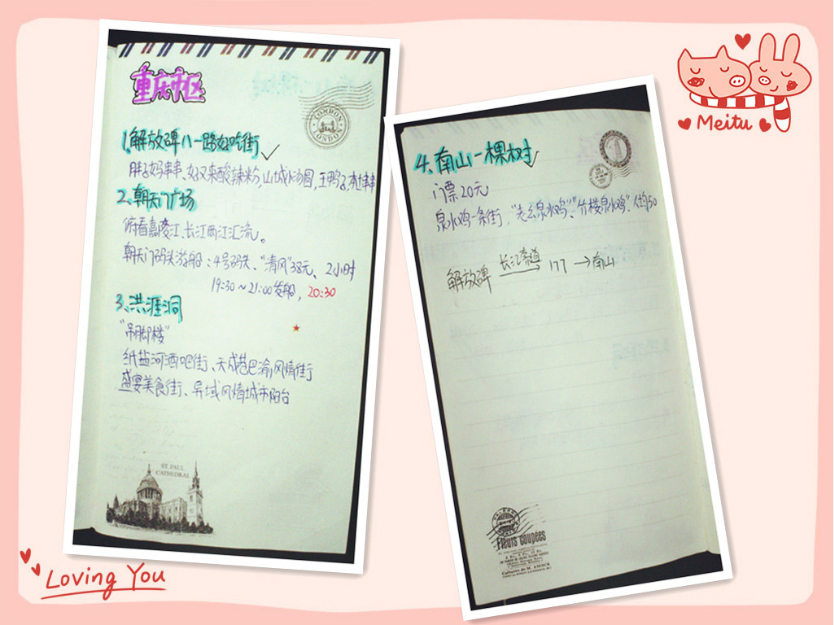 重庆市区
1.解放碑八一路好吃街
胖子妈串串、好又来酸辣粉,山城汤圆,王鸭子,
2.朝天门广场
俯看嘉陵江、长江两江汇流。
朝天门码头游船:4号码头、"清风"38元、2小时
19:30~21:00发船,20:30
3.洪涯洞
"吊脚楼"
纸盐河酒吧街、天成巷巴渝风情街
盛宴美食街、异域风情城市阳台
LONDON
LONDON
ST. PAUL
CATHEDRAL
4.南山一棵树
门票20元
泉水鸡一条街,"老幺泉水鸡"、"竹楼泉水鸡",人均50
解放碑 长江索道 177→南山
Fleurs coupées
Meitu
Loving You